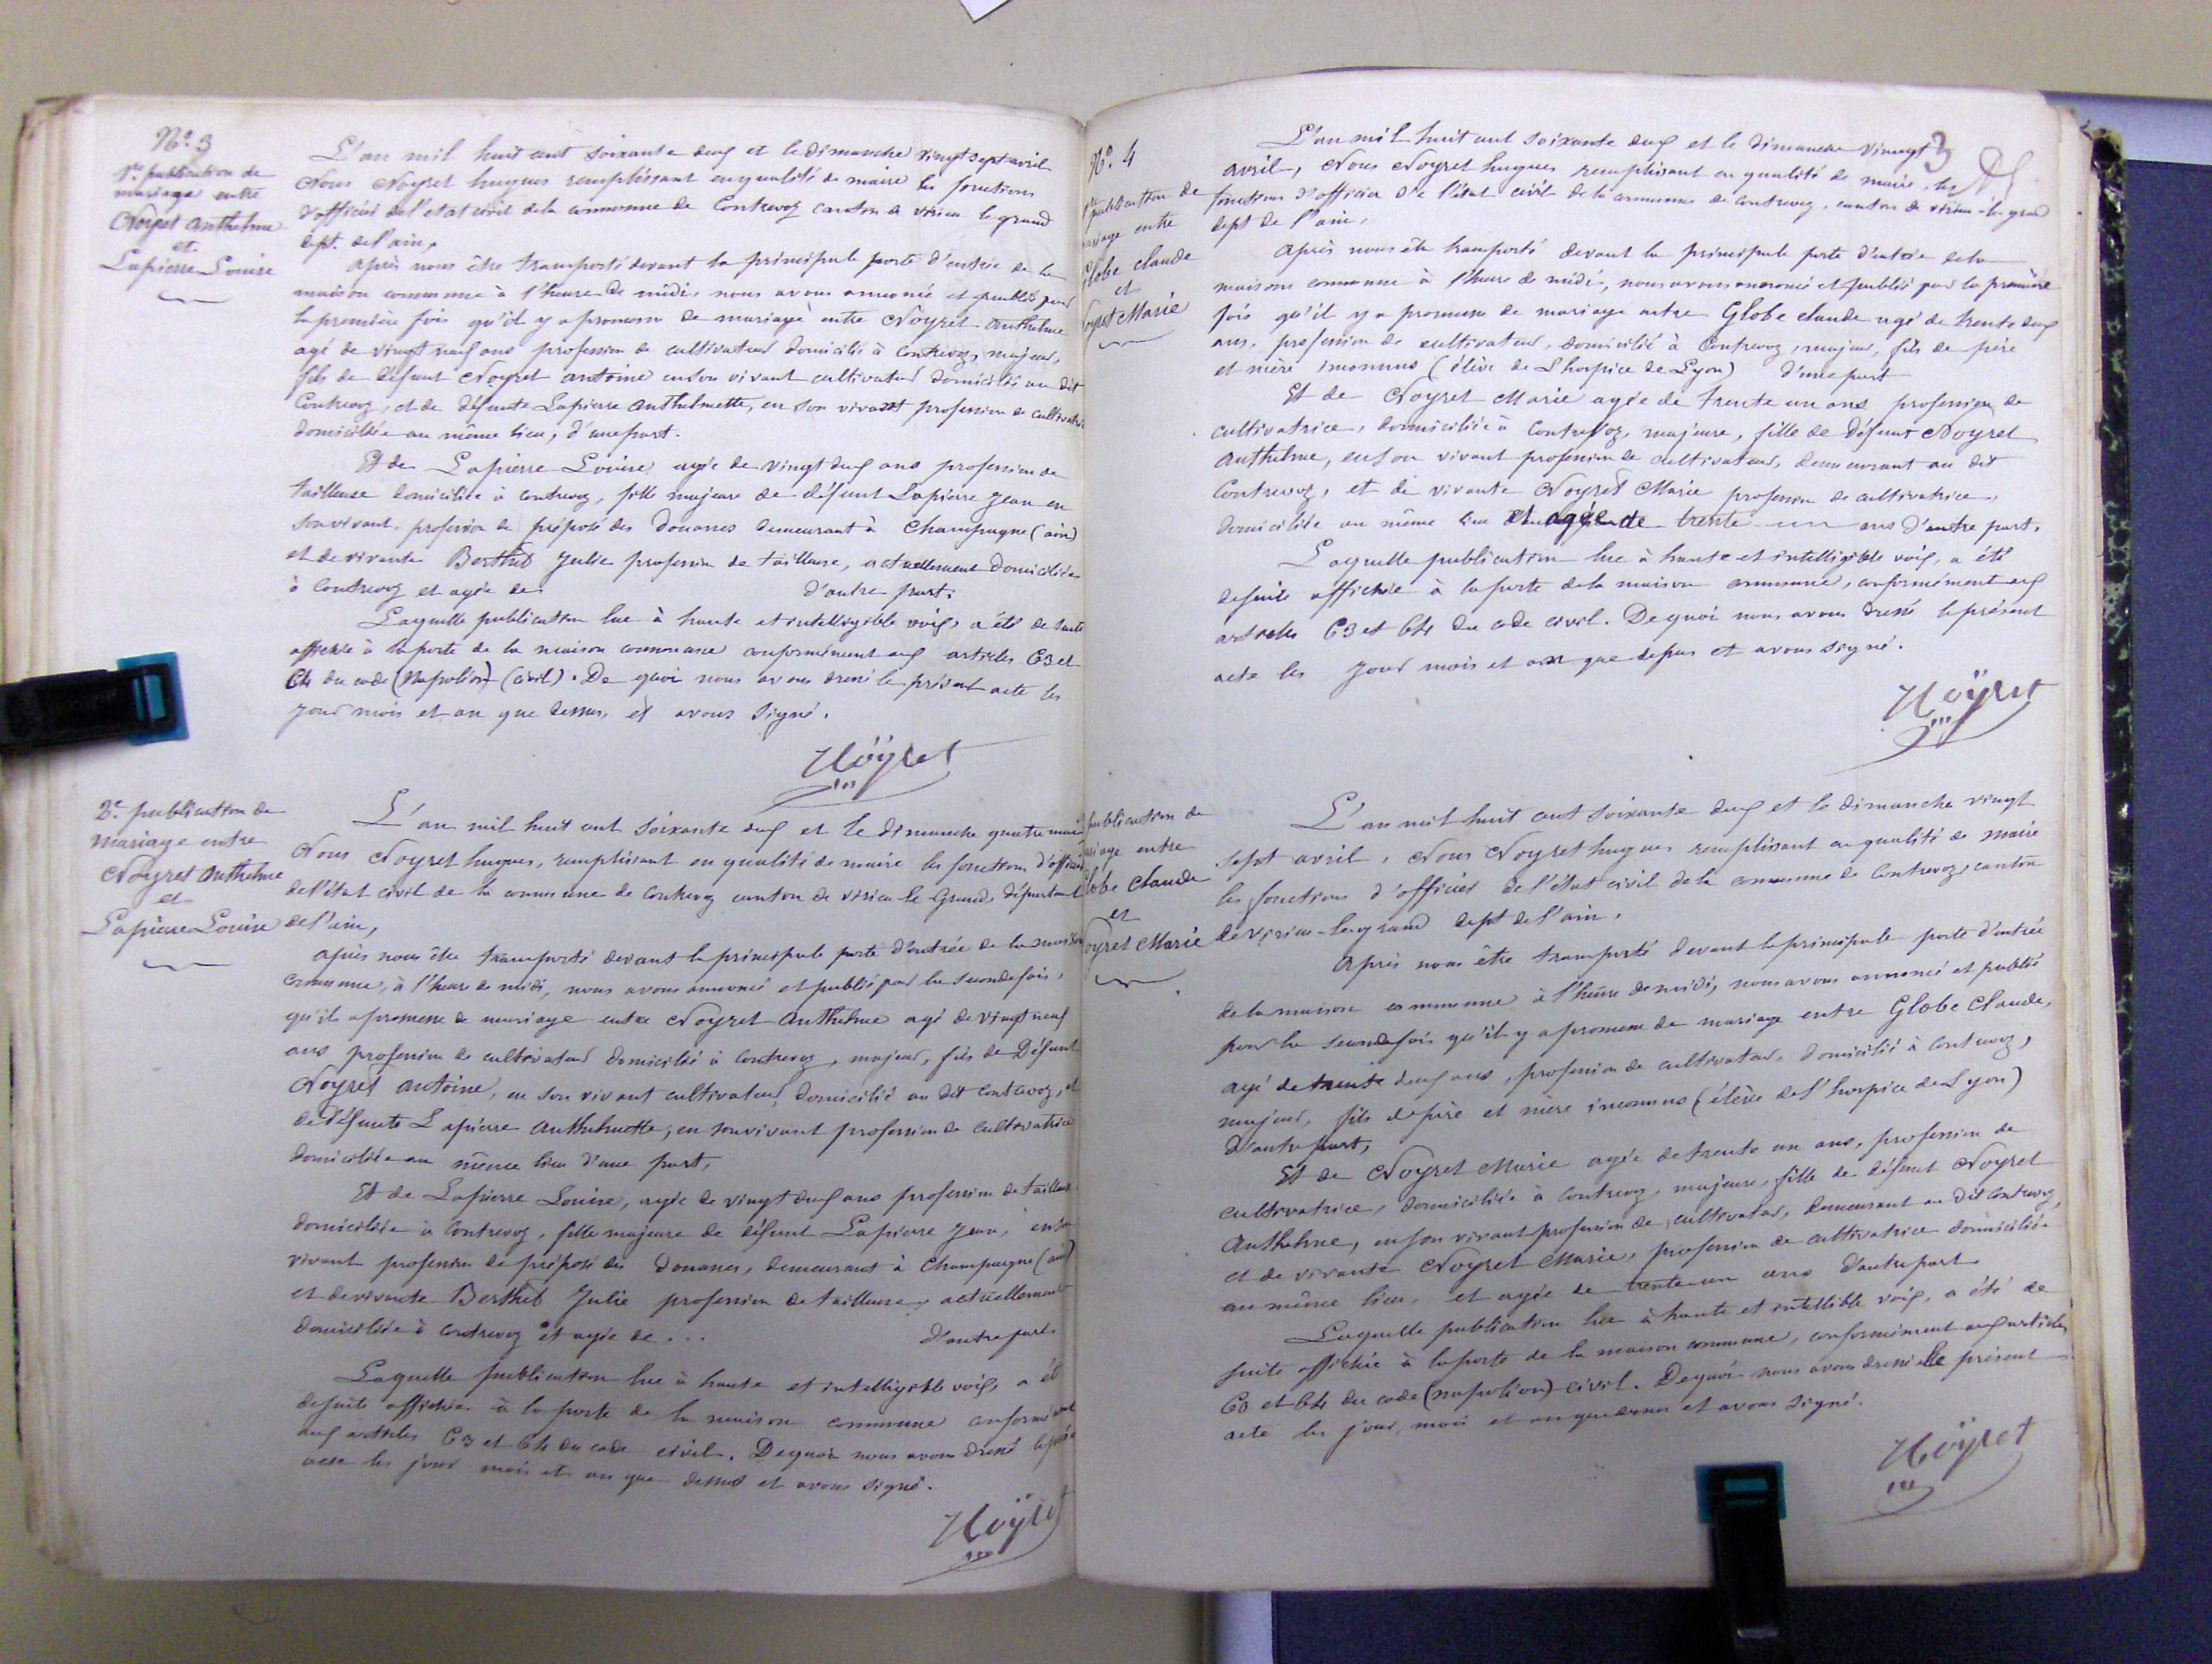 Nº. 3
1re publication de
mariage entre
Noyret Anthelme
et
Lapierre Louise
L'an mil huit cent soixante deux et le dimanche vingt sept avril
Nous Noyret hugues remplissant en qualité de maire les fonctions
d'officier de l'etat civil de la commune de Contrevoz canton de virieu le grand
dept. de l'ain,
après nous être transporté devant la principale porte d'entrée de la
maison commune à l'heure de midi, nous avons annoncé et publié pour
la première fois qu'il y a promesse de mariage entre Noyret Anthelme
agé de vingt neuf ans profession de cultivateur domicilié à Contrevoz, majeur,
fils de défunt Noyret antoine en son vivant cultivateur domicilié au dit
Contrevoz, et de défunte Lapierre Anthelmette, en son vivant profession de cultivatrice
domiciliée au même lieu, d'une part.
Et de Lapierre Louise agée de vingt deux ans profession de
tailleuse domiciliée à contrevoz, fille majeure de défunt Lapierre Jean en
son vivant profession de préposé des Douanes demeurant à Champagne (ain)
et de vivante Berthet Julie profession de tailleuse, actuellement domiciliée
à Contrevoz et agée de d'autre part.
Laquelle publication lue à haute et intelligible voix, a été de suite
affichée à la porte de la maison commune conformément aux articles 63 et
64 du code (Napoléon) (civil). De quoi nous avons dressé le présent acte les
jour mois et an que dessus, et avons signé.
Noÿret
2e. publication de
mariage entre
Noyret Anthelme
et
Lapierre Louise
L'an mil huit cent soixante deux et le dimanche quatre mai
Nous Noyret hugues, remplissant en qualité de maire les fonctions d'officier
de l'état civil de la commune de Contrevoz canton de virieu-le-Grand, département
de l'ain,
après nous être transporté devant la principale porte d'entrée de la maison
commune, à l'heure de midi, nous avons annoncé et publié pour la seconde fois,
qu'il a promesse de mariage entre Noyret Anthelme agé de vingt neuf
ans profession de cultivateur domicilié à Contrevoz, majeur, fils de Défunt
Noyret antoine, en son vivant cultivateur, domicilié au dit Contrevoz, et
de défunte Lapierre Anthelmette, en son vivant profession de cultivatrice
domiciliée au même lieu d'une part,
Et de Lapierre Louise, agée de vingt deux ans profession de tailleuse
domiciliée à Contrevoz, fille majeure de défunt Lapierre Jean, en son
vivant profession de préposé des Douanes, demeurant à Champagne (ain)
et de vivante Berthet Julie profession de tailleuse, actuellement
domiciliée à Contrevoz et agée de ... d'autre part.
Laquelle publication lue à haute et intelligible voix, a été
de suite affichée à la porte de la maison commune conformément
aux articles 63 et 64 du code civil. De quoi nous avons dressé le
acte les jour mois et an que dessus et avons signé.
Noÿret
Nº. 4
publication de
mariage entre
Globe Claude
et
Noyret Marie
3
L'an mil huit cent soixante deux et le dimanche vingt
avril, Nous Noyret hugues remplissant en qualité de maire, les
fonctions d'officier de l'état civil de la commune de Contrevoz, canton de virieu-le-grand
dept de l'ain,
Après nous être transporté devant la principale porte d'entrée de la
maison commune à l'heure de midi, nous avons annoncé et publié pour la première
fois qu'il y a promesse de mariage entre Globe Claude agé de trente deux
ans, profession de cultivateur, domicilié à Contrevoz, majeur, fils de père
et mère inconnus (élève de L'hospice de Lyon) d'une part
Et de Noyret Marie agée de trente un ans profession de
cultivatrice, domiciliée à Contrevoz, majeure, fille de défunt Noyret
Anthelme, en son vivant profession de cultivateur, demeurant au dit
Contrevoz, et de vivante Noyret Marie profession de cultivatrice,
domiciliée au même lieu et agée de trente un ans d'autre part.
Laquelle publication lue à haute et intelligible voix, a été
de suite affichée à la porte de la maison commune, conformément aux
articles 63 et 64 du code civil. De quoi nous avons dressé le présent
acte les jour mois et an que dessus et avons signé.
Noÿret
publication de
mariage entre
Globe Claude
et
Noyret Marie
L'an mil huit cent soixante deux et le dimanche vingt
sept avril, Nous Noyret hugues remplissant en qualité de maire
les fonctions d'officier de l'état civil de la commune de Contrevoz, canton
de virieu-le-grand dept de l'ain,
Après nous être transporté devant la principale porte d'entrée
de la maison commune à l'heure de midi, nous avons annoncé et publié
pour la seconde fois qu'il y a promesse de mariage entre Globe Claude,
agé de trente deux ans, profession de cultivateur, domicilié à Contrevoz,
majeur, fils de père et mère inconnus (élève de l'hospice de Lyon)
d'autre part,
Et de Noyret Marie agée de trente un ans, profession de
cultivatrice, domiciliée à Contrevoz, majeure, fille de défunt Noyret
Anthelme, en son vivant profession de cultivateur, demeurant au dit Contrevoz,
et de vivante Noyret Marie, profession de cultivatrice domiciliée
au même lieu, et agée de trente un ans d'autre part.
Laquelle publication lue à haute et intellible voix, a été de
suite affichée à la porte de la maison commune, conformément aux articles
63 et 64 du code (napoléon) civil. De quoi nous avons dressé le présent
acte les jour, mois et an que dessus et avons signé.
Noÿret